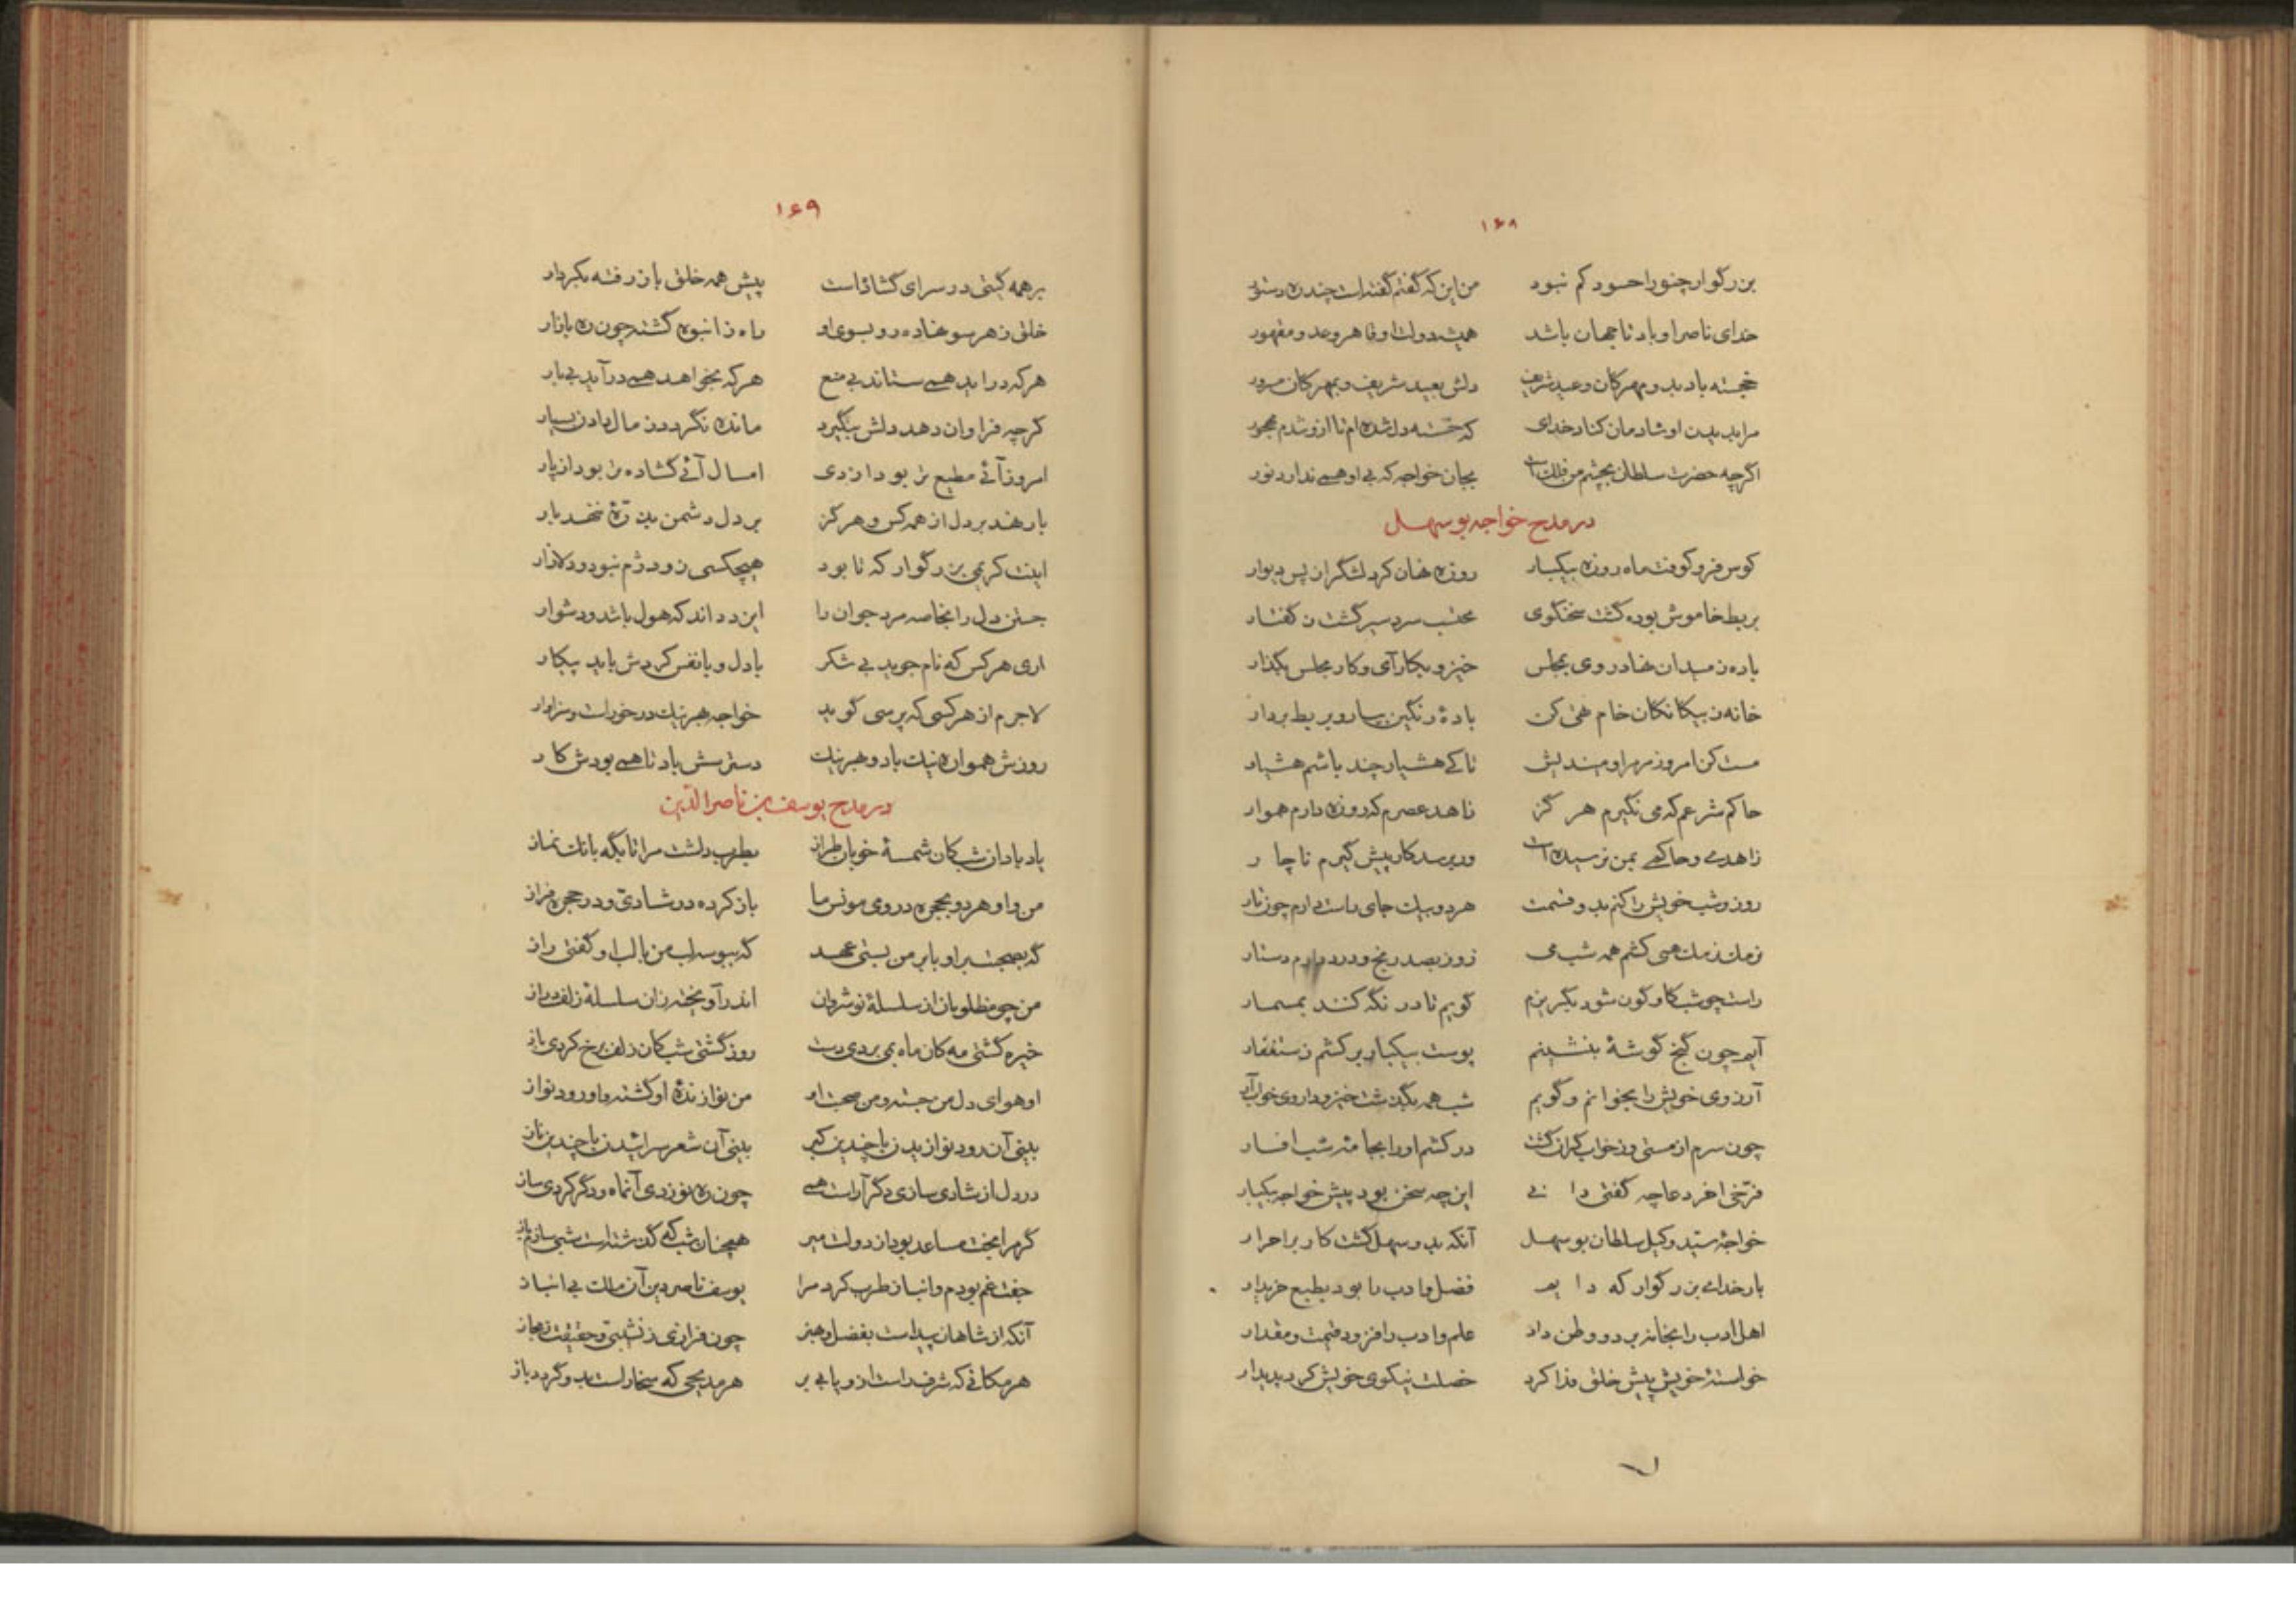 ۱۶۸
بزرگوار چنو را حسود کم نبود من این که گفتم گفته است چند ره دستور
خدای ناصر او باد تا جهان باشد همیشه دولت او قاهر و عدو مقهور
خجسته باد بدو مهرکان و عید شریف دلش بعید شریف و بمهرکان مسرور
مرا بدیدن او شادمان کناد خدای که خسته دل شده‌ام تا ازو شدم مهجور
اگرچه حضرت سلطان بچشم من فلک است بجان خواجه که بی او همی ندارد نور
در مدح خواجه بوسهل
کوس فرو کوفت ماه روزه بیکبار روزه نهان کرد لشگر از پس دیوار
بربط خاموش بوده گشت سخنگوی محتسب سرد سیر گشت ز گفتار
باده ز میدان نهاد روی بمجلس خیز و بکار آی و کار مجلس بگذار
خانه ز بیکانکان خام تهی کن باده رنگین بیار و بربط بردار
مست کن امروز مر مرا و میندیش تا کی هشیار چند باشم هشیار
حاکم شرعم که می نگیرم هرگز زاهد عصرم که روزه دارم هموار
زاهدی و حاکمی بمن نرسیده است ور برسد کار پیش گیرم ناچار
روز و شب خویش را کنم بدو قسمت هر دو بیک جای راست دارم چون تار
نرمک نرمک همی کشم همه شب می روز بصد رنج و درد دارم دستار
راست چو شب کاوگون شود بگریزم گویم تا در نگه کنند بمسمار
آیم چون گنج گوشهٔ بنشینم پوست بیکبار برکشم ز ستغفار
آرزوی خویش را بخوانم و گویم شب همه بگذشت خیز و داروی خواب آر
چون سرم از مستی و ز خواب گران گشت در کشم او را بجامه شب افسار
فرخی آخر دعا چه گفتی دانی این چه سخن بود پیش خواجه بیکبار
خواجهٔ سید وکیل سلطان بوسهل آنکه بدو سهل گشت کار بر احرار
بار خدای بزرگوار که دایم فضل و ادب را بود بطبع خریدار
اهل ادب را بخانه برد و وطن داد علم و ادب را فزود قیمت و مقدار
خواستهٔ خویش پیش خلق فدا کرد خصلت نیکوی خویش کرد پدیدار
۱۶۹
بر همه گیتی در سرای گشاده است پیش همه خلق باز رفته بکردار
خلق ز هر سو نهاده روی بسوی او راه ز انبوه گشته چون ره بازار
هر که درآید همی ستاند بی منع هر که بخواهد همی درآید بی بار
گرچه فراوان دهد دلش بنگیرد مانده نگردد ز مال دادن بسیار
امروز آنی مطیع‌تر بود از دی امسال آنی گشاده‌تر بود از پار
بار نهد بر دل از همه کس و هرگز بر دل دشمن بذرهٔ ننهد بار
اینت کریمی بزرگوار که تا بود هیچکسی زو دژم نبود و دلازار
جستن دل را بخاصه مرد جوان را این دو داند که هول باشد و دشوار
آری هر کس که نام جوید بی شک با دل و با نفس کردش باید پیکار
لاجرم از هر کسی که پرسی گوید خواجه بهر نیک درخور است و سزاوار
روزش همواره نیک باد و بهر نیک دسترسش باد تا همی بودش کار
در مدح یوسف بن ناصرالدین
یاد باد آن شب کان شمسهٔ خوبان طراز بطرب داشت مرا تا بگه بانک نماز
من و او هر دو بحجره در و می مونس ما باز کرده در شادی و در حجره فراز
گه بصحبت بر او با بر من بستی عهد گه ببوسه لب من با لب او گفتی راز
من چو مظلومان از سلسلهٔ نوشروان اندر آویخته زان سلسلهٔ زلف دراز
خیره گشتی مه کان ماه بمی بردی دست روز گشتی شب کان زلف برخ کردی باز
او هوای دل من جسته و من صحبت او من نوازندهٔ او گشته و او رود نواز
بینی آن رود نوازیدن با چندین کبر بینی آن شعر سرائیدن با چندین ناز
در دل از شادی سازی دگر آراست همی چون ره نو زدی آن ماه و دگر کردی ساز
گر مرا بخت مساعد بود از دولت میر همچنان شب که گذشته است شبی سازم باز
جفت غم بودم و انباز طرب کرد مرا یوسف ناصر دین آن ملک بی انباز
آنکه از شاهان پیداست بفضل و هنر چون فرازی ز نشیبی و حقیقت ز مجاز
هر مکانی که شرف راست ازو یابی بر هر مدیحی که سخا راست بدو گردد باز